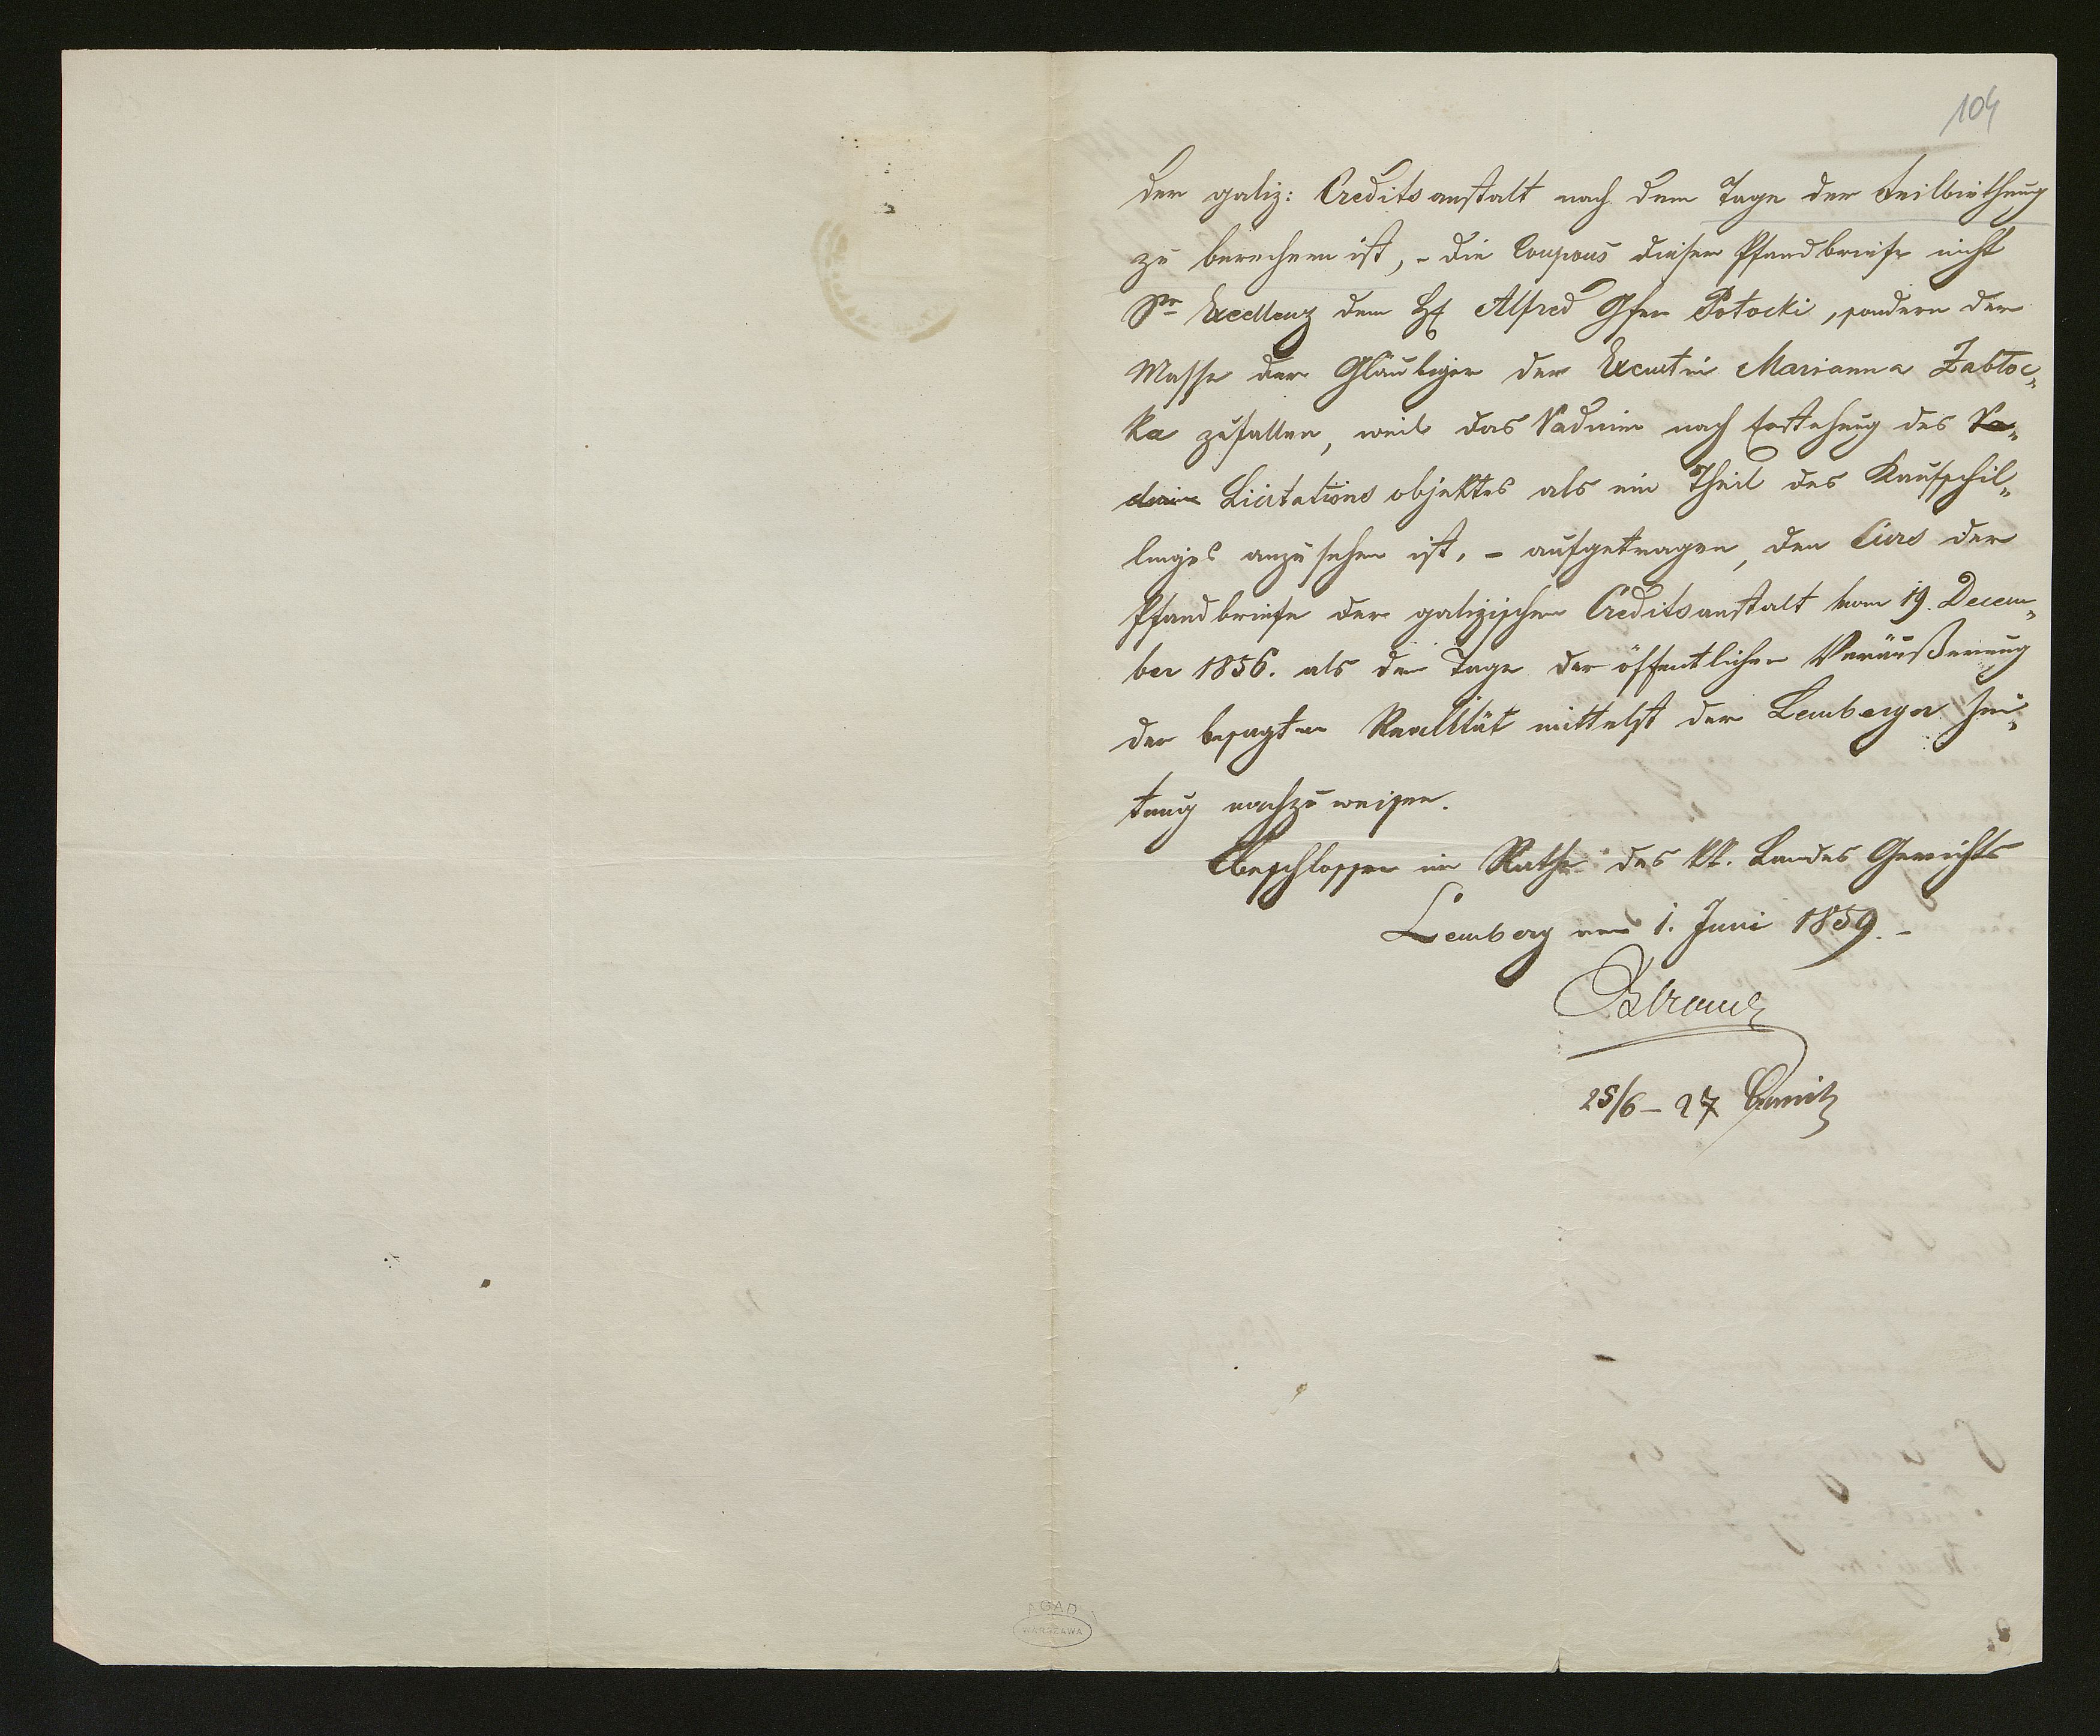 104
der galiz: Creditsanstalt nach dem Tage der Feilbiethung
zu berechnen ist, - die Coupons dieser Pfandbriefe nicht
Sr Excellenz dem H Alfred Gfen Potocki, sondern der
Masse der Gläubiger der Executin Marianna Zabłoc„
ka zufallen, weil das Vadium nach Erstehung des Va„
dium Licitations objektes als ein Theil des Kaufschil„
linges anzusehen ist, - aufgetragen, den Curs der
Pfandbriefe der galizischen Creditsanstalt vom 19. Decem„
ber 1856. als dem Tage der öffentlichen Veräußerung
der besagten Realität mittelst der Lemberger Zei„
tung nachzuweisen.
Beschlossen im Rathe des kk. Landes Gerichts
Lemberg am 1. Juni 1859. -
25/6 - 27
AGAD
WARSZAWA